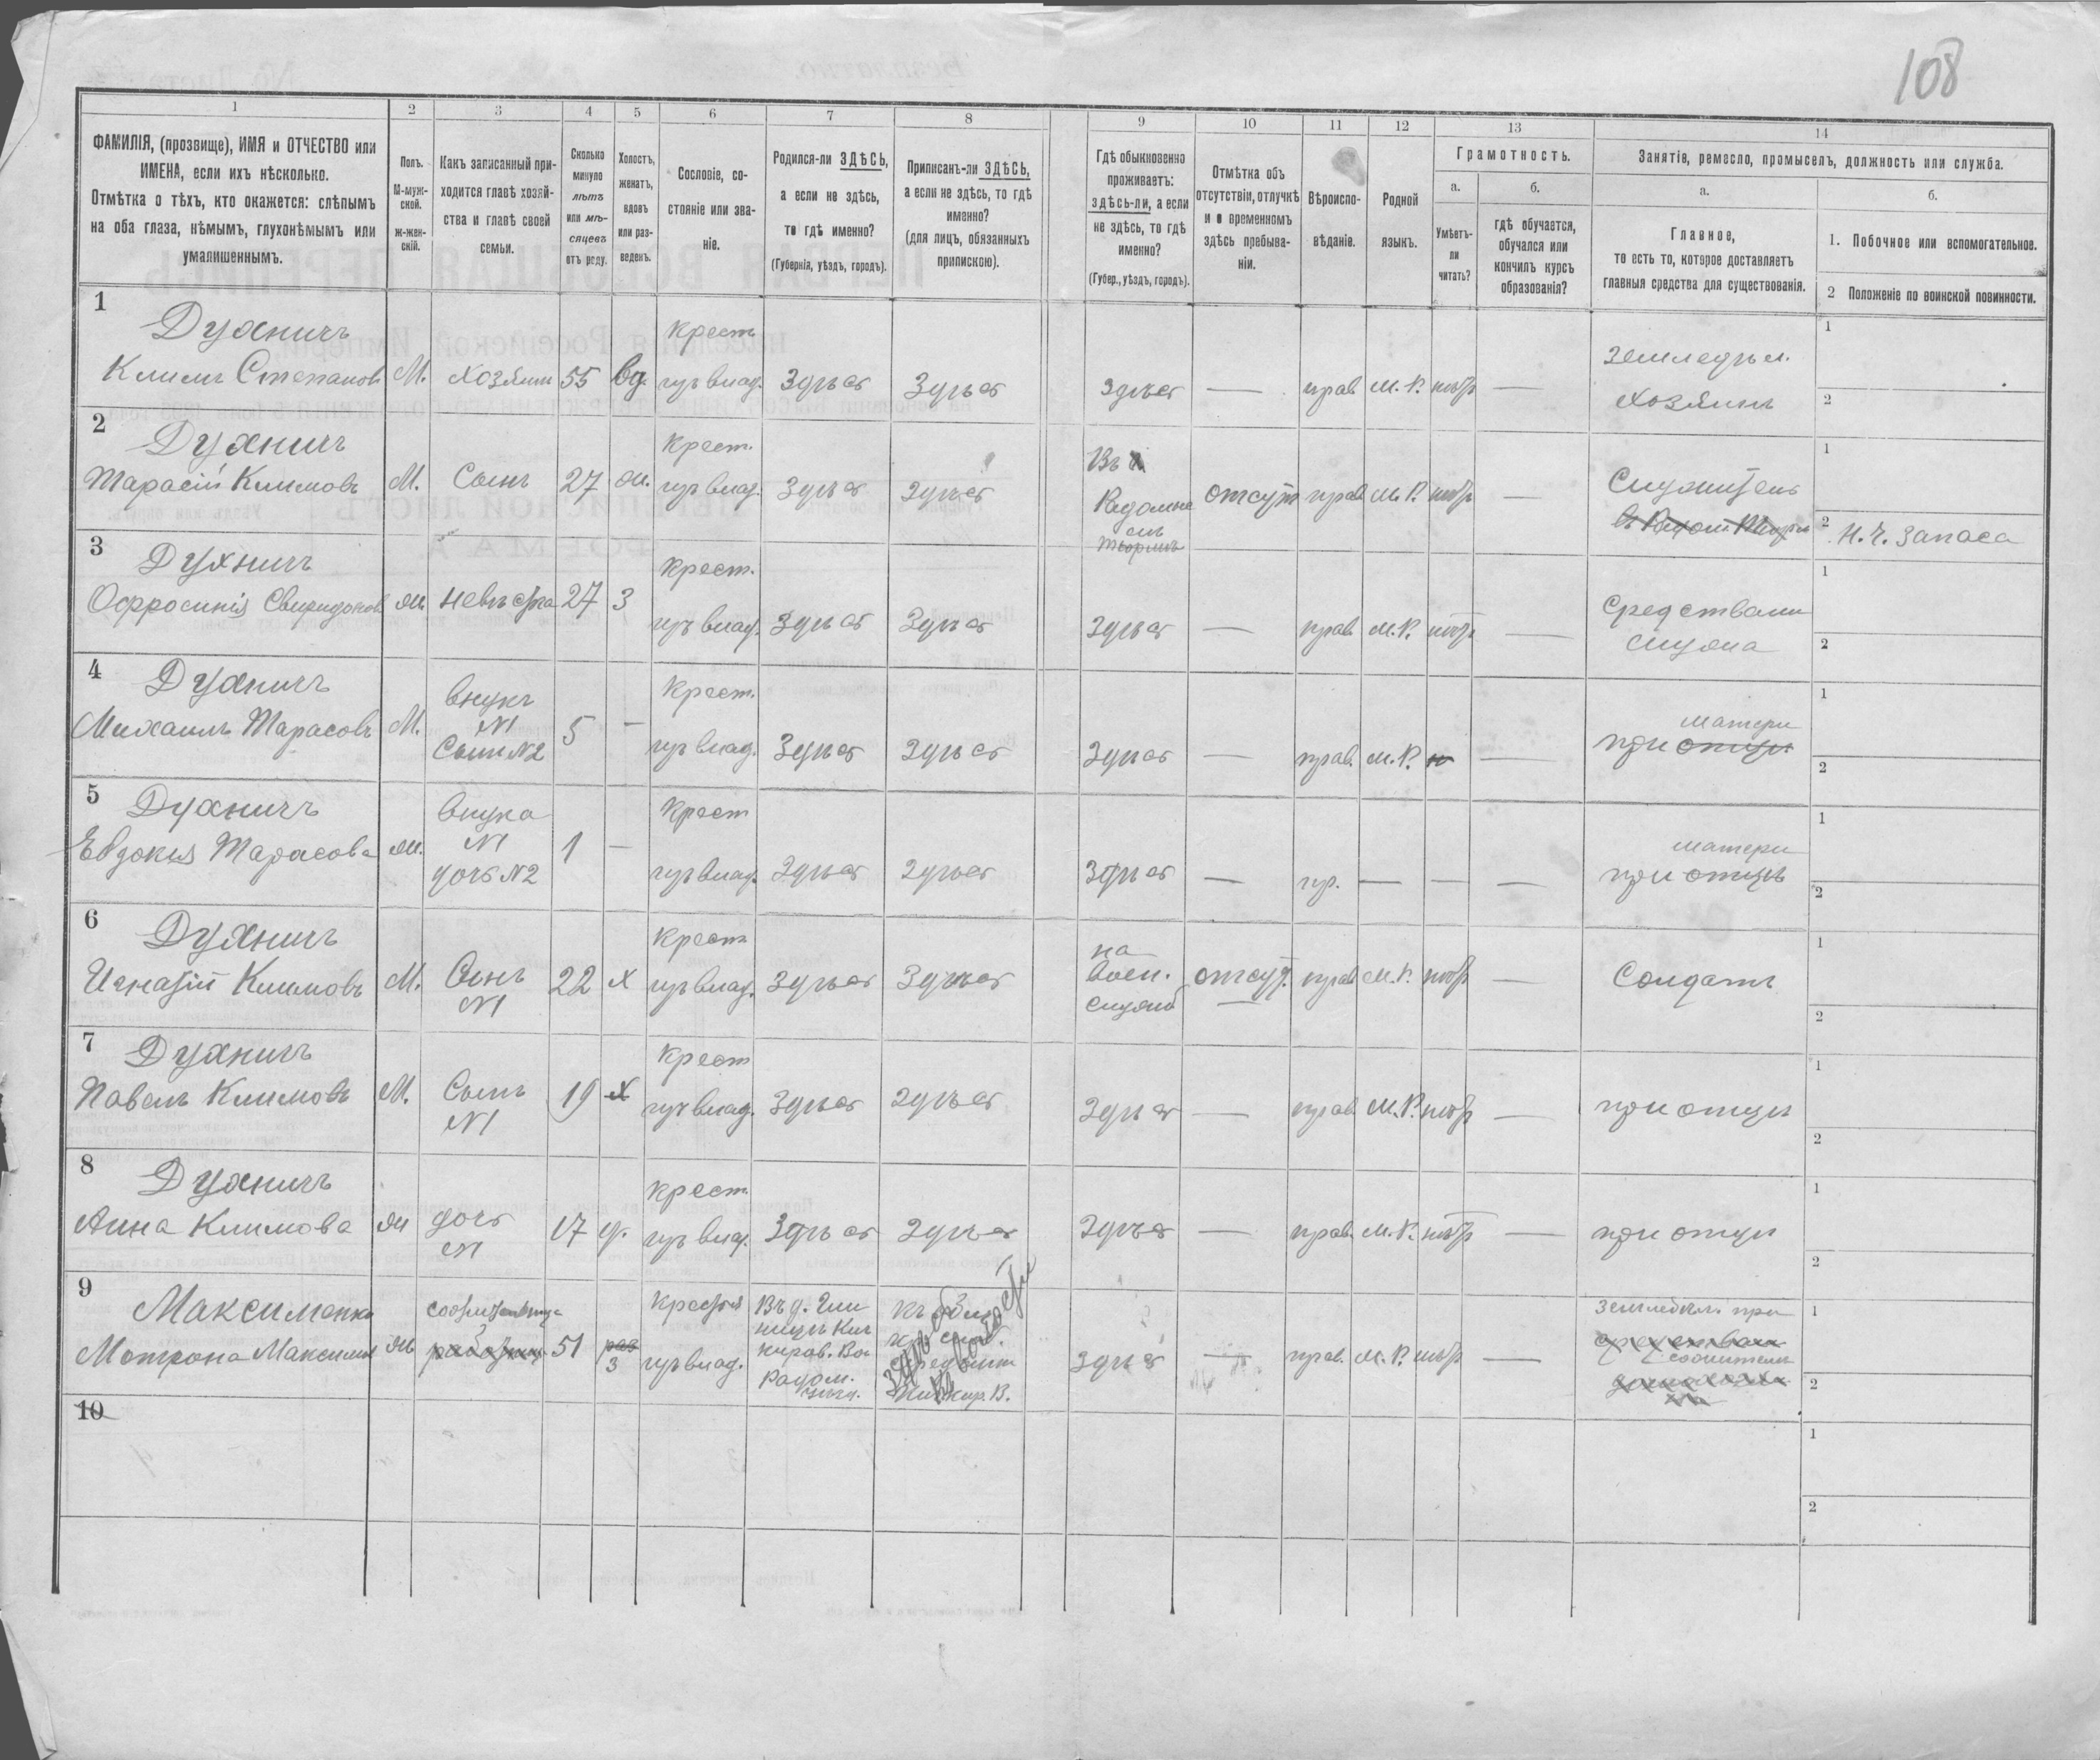 108
1 2 3 4 5 6 7 8 9 10 11 12 13 14
ФАМИЛІЯ, (прозвище), ИМЯ и ОТЧЕСТВО или
ИМЕНА, если ихъ нѣсколько.
Отмѣтка о тѣхъ, кто окажется: слѣпымъ
на оба глаза, нѣмымъ, глухонѣмымъ или
умалишеннымъ.
Полъ.
М-муж-
ской.
Ж-жен-
скій.
Какъ записанный при-
ходится главѣ хозяй-
ства и главѣ своей
семьи.
Сколько
минуло
лѣтъ
или мѣ-
сяцевъ
отъ роду.
Холостъ,
женатъ,
вдовъ
или раз-
веденъ.
Сословіе, со-
стояніе или зва-
ніе.
Родился-ли ЗДѢСЬ,
а если не здѣсь,
то гдѣ именно?
(Губернія, уѣздъ, городъ).
Приписанъ-ли ЗДѢСЬ,
а если не здѣсь, то гдѣ
именно?
(для лицъ, обязанныхъ
припискою).
Гдѣ обыкновенно
проживаетъ:
здѣсь-ли, а если
не здѣсь, то гдѣ
именно?
(Губер., уѣздъ, городъ).
Отмѣтка объ
отсутствіи, отлучкѣ
и о временномъ
здѣсь пребыва-
ніи.
Вѣроиспо-
вѣданіе.
Родной
языкъ.
Грамотность.
а.
Умѣетъ-
ли
читать?
б.
гдѣ обучается,
обучался или
кончилъ курсъ
образованія?
Занятіе, ремесло, промыселъ, должность или служба.
а.
Главное,
то есть то, которое доставляетъ
главныя средства для существованія.
б.
1. Побочное или вспомогательное.
2 Положеніе по воинской повинности.
1
Духничъ крест земледѣл. 1
Климъ Степановъ М. хозяинъ 55 вд. гр. влад. Здѣсь Здѣсь здѣсь — прав М.Р. нѣтъ — хозяинъ 2
2
Духничъ крест. Въ 1
Тарасій Климовъ М. Сынъ 27 ж. влад. Здѣсь Здѣсь Радомы отсут прав М.Р. нѣтъ — Служитель
2 Н.Ч. запаса
3
Духничъ крест. Средствами 1
Оффросинія Свиридонов ж. невѣстка 27 З влад. Здѣсь Здѣсь Здѣсь — прав М.Р. нѣтъ — мужа 2
4
Духничъ внукъ крест. матери 1
Михаилъ Тарасовъ М. N1 5 — влад. Здѣсь Здѣсь Здѣсь — прав. М.Р. н — при отцѣ 2
Сынъ N2
5
Духничъ внука крест матери 1
Евдокия Тарасова ж. N1 1 — влад. Здѣсь Здѣсь Здѣсь — пр. — — — при отцѣ 2
дочь N2
6
Духничъ крест на 1
Игнатій Климовъ М. Сынъ 22 х влад. Здѣсь Здѣсь воен. отсут. прав М.Р. нѣтъ — Солдатъ 2
N1 службѣ —
7
Духничъ крест 1
Павелъ Климовъ М. Сынъ 19 х влад. Здѣсь Здѣсь Здѣсь — прав М.Р. нѣтъ — при отцѣ 2
N1
8
Духничъ крест 1
Анна Климова ж дочь 17 д. влад. Здѣсь Здѣсь Здѣсь — прав. М.Р. нѣтъ — при отцѣ 2
N1
9
Максименко сожительница Въ д. земледѣл. при 1
Мотрона Максимов ж 51 З влад. Радом. Здѣсь — прав. М.Р. нѣтъ — 2
10
1
2